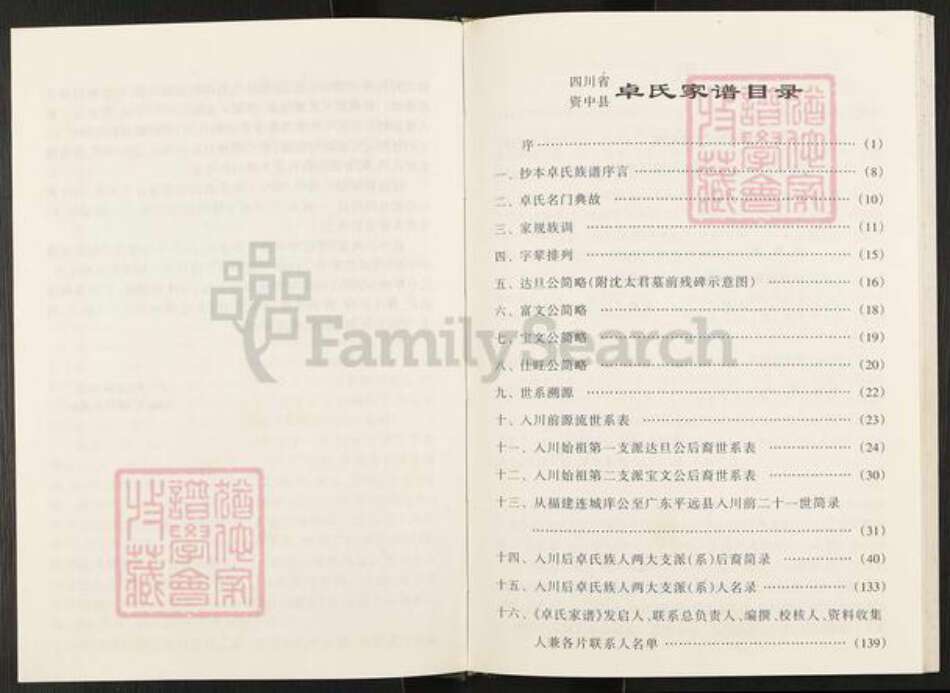 四川省
资中县
卓氏家谱目录
序……………………………………(1)
一、抄本卓氏族谱序言……………………………………(8)
二、卓氏名门典故……………………………………(10)
三、家规族训……………………………………(11)
四、字辈排列……………………………………(15)
五、达旦公简略(附沈太君墓前残碑示意图)……………(16)
六、富文公简略……………………………………(18)
七、宝文公简略……………………………………(19)
八、仕旺公简略……………………………………(20)
九、世系溯源……………………………………(22)
十、入川前源流世系表……………………………………(23)
十一、入川始祖第一支派达旦公后裔世系表……………(24)
十二、入川始祖第二支派宝文公后裔世系表……………(30)
十三、从福建连城庠公至广东平远县入川前二十一世简录
……………………………………(31)
十四、入川后卓氏族人两大支派(系)后裔简录…………(40)
十五、入川后卓氏族人两大支派(系)人名录……………(133)
十六、《卓氏家谱》发启人、联系总负责人、编撰、校核人、资料收集
人兼各片联系人名单……………………………………(139)
FamilySearch